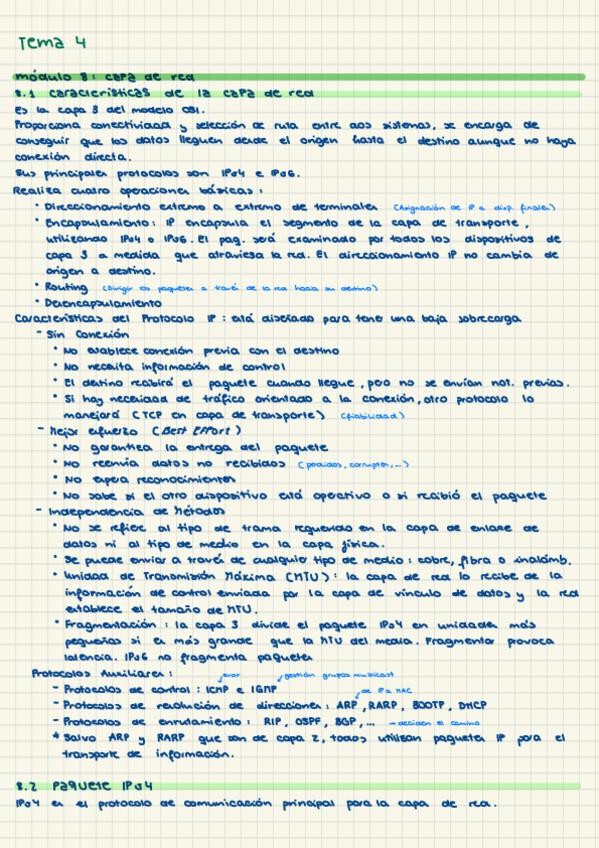 Tema 4
módulo 8: capa de red
8.1 características de la capa de red
Es la capa 3 del modelo OSI.
Proporciona conectividad y selección de ruta entre dos sistemas, se encarga de
conseguir que los datos lleguen desde el origen hasta el destino aunque no haya
conexión directa.
Sus principales protocolos son IPv4 e IPv6.
Realiza cuatro operaciones básicas:
· Direccionamiento extremo a extremo de terminales (Asignación de IP a disp. finales)
· Encapsulamiento: IP encapsula el segmento de la capa de transporte,
utilizando IPv4 o IPv6. El paq. será examinado por todos los dispositivos de
capa 3 a medida que atraviesa la red. El direccionamiento IP no cambia de
origen a destino.
· Routing (Dirigir los paquetes a través de la red hacia su destino)
· Desencapsulamiento
Características del Protocolo IP: está diseñado para tener una baja sobrecarga
- Sin Conexión
· No establece conexión previa con el destino
· No necesita información de control
· El destino recibirá el paquete cuando llegue, pero no se envían not. previas.
· Si hay necesidad de tráfico orientado a la conexión, otro protocolo lo
manejará (TCP en capa de transporte) (fiabilidad)
- Mejor esfuerzo (Best Effort)
· No garantiza la entrega del paquete
· No reenvía datos no recibidos (perdidos, corruptos,...)
· No espera reconocimientos
· No sabe si el otro dispositivo está operativo o si recibió el paquete
- Independencia de Métodos
· No se refiere al tipo de trama requerido en la capa de enlace de
datos ni al tipo de medio en la capa física.
· Se puede enviar a través de cualquier tipo de medio: cobre, fibra o inalámb.
· Unidad de Transmisión Máxima (MTU): la capa de red lo recibe de la
información de control enviada por la capa de vínculo de datos y la red
establece el tamaño de MTU.
· Fragmentación: la capa 3 divide el paquete IPv4 en unidades más
pequeñas si es más grande que la MTU del medio. Fragmentar provoca
latencia. IPv6 no fragmenta paquetes
Protocolos Auxiliares: error gestión grupos multicast
- Protocolos de control: ICMP e IGMP de IP a MAC
- Protocolos de resolución de direcciones: ARP, RARP, BOOTP, DHCP
- Protocolos de enrutamiento: RIP, OSPF, BGP,... → deciden el camino
* Salvo ARP y RARP que son de capa 2, todos utilizan paquetes IP para el
transporte de información.
8.2 Paquete IPv4
IPv4 es el protocolo de comunicación principal para la capa de red.